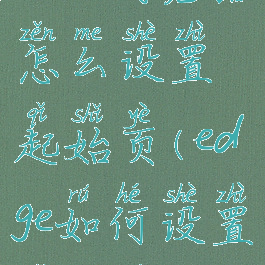 zěn me shè zhì
怎么设置
qǐ shǐ yè
起始页(ed
rú hé shè zhì
ge如何设置